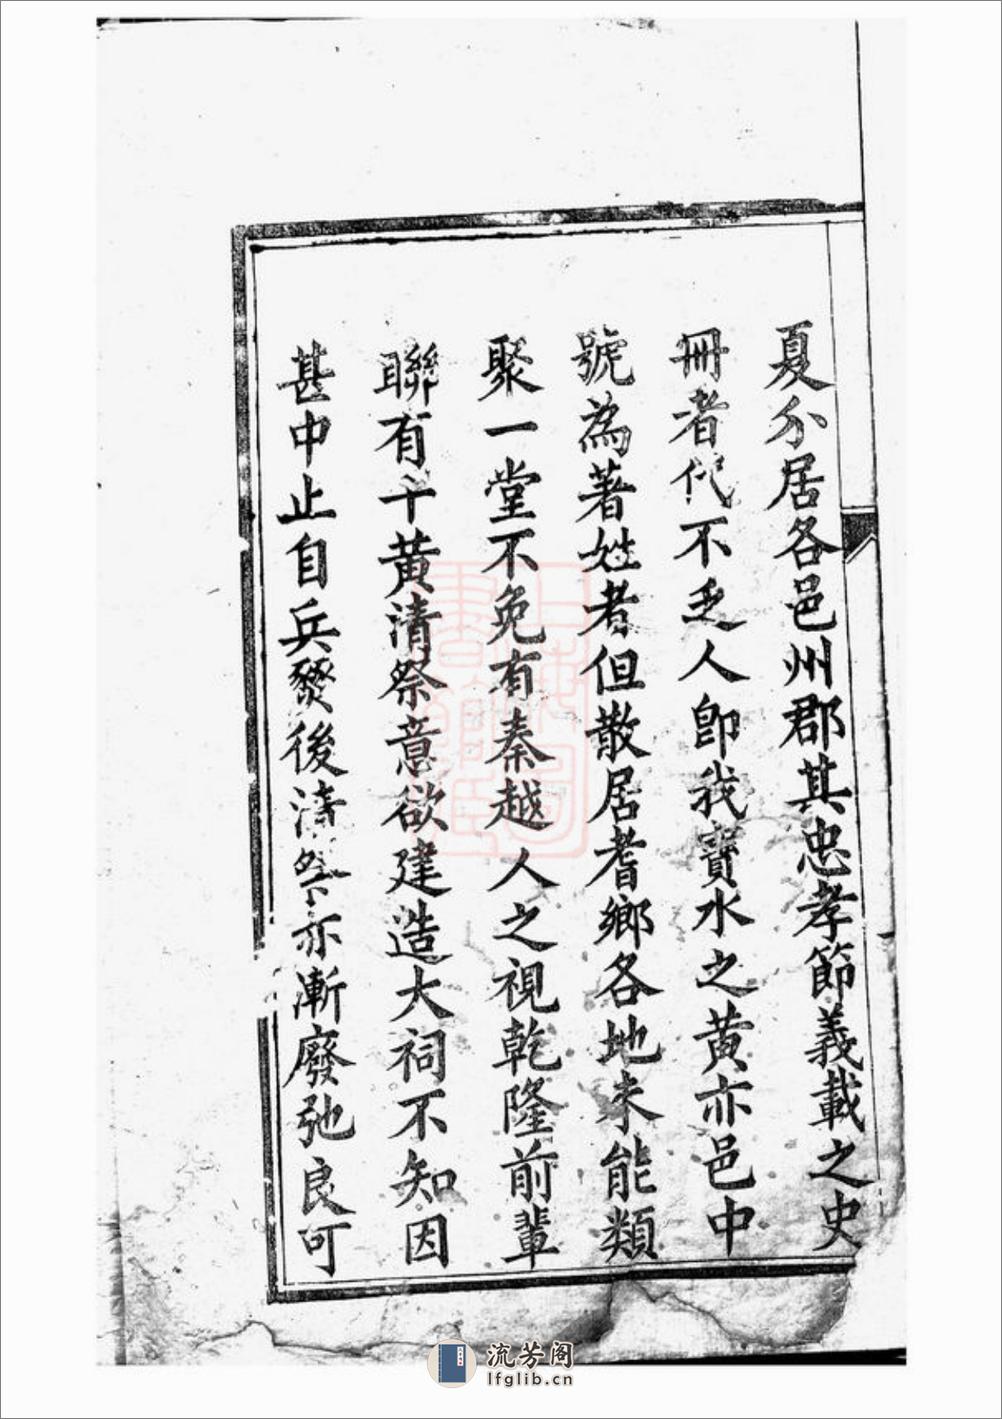 夏分居各邑州郡其忠孝節義載之史
冊者代不乏人卽我寶水之黃亦邑中
號為著姓者但散居耆鄉各地未能類
聚一堂不免有秦越人之視乾隆前輩
聯有千黃清祭意欲建造大祠不知因
甚中止自兵燹後清祭亦漸廢弛良可
上海圖書館藏
流芳阁
lfglib.cn